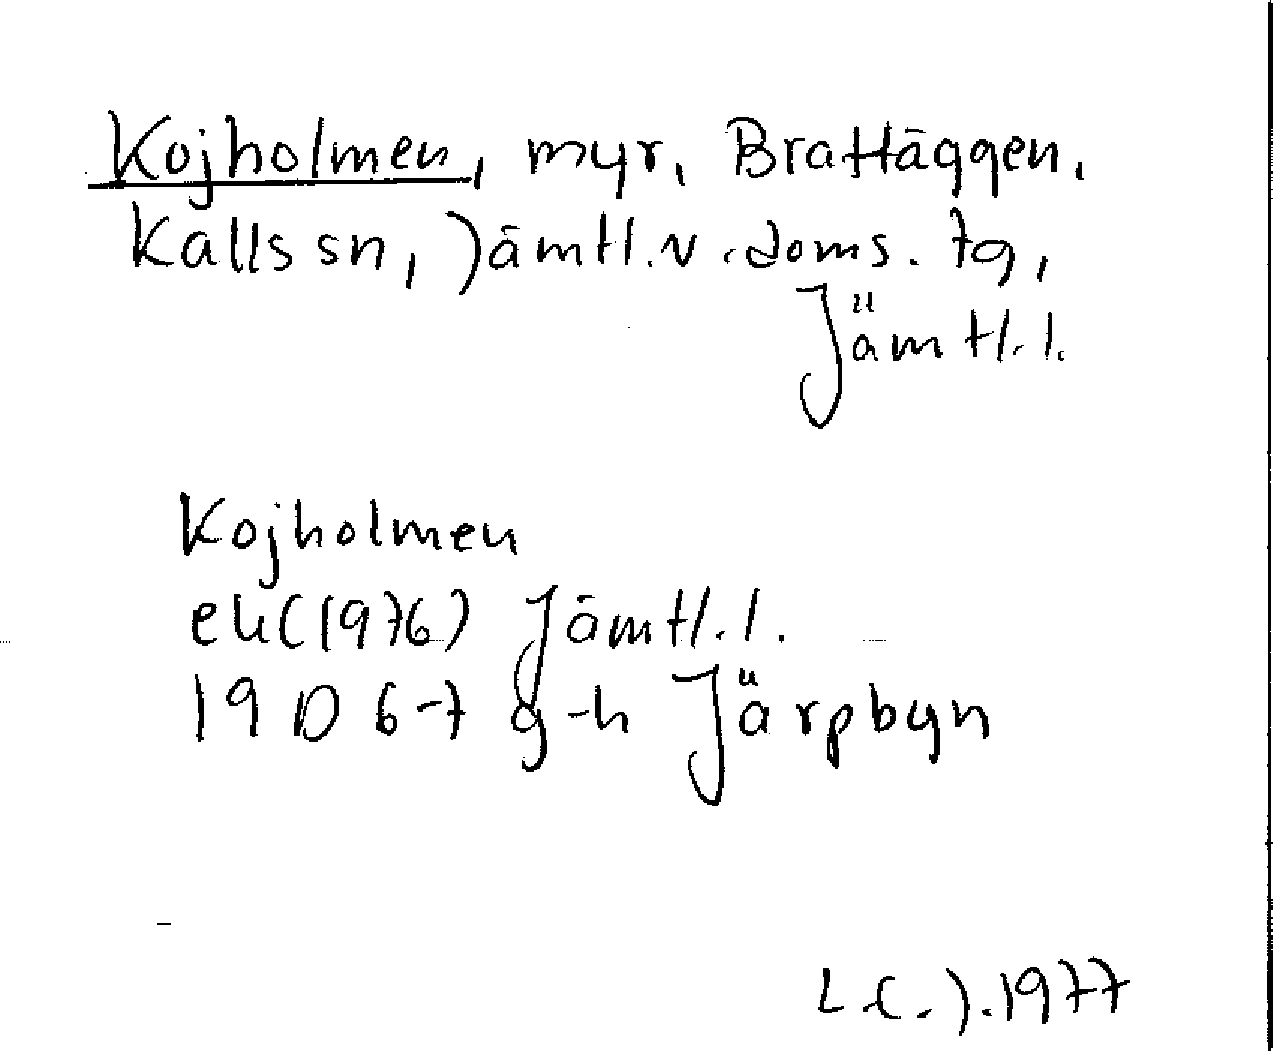 Kojholmen, myr, Brattäggen,
Kalls sn, Jämtl.v.doms.tg,
Jämtl.l.
Kojholmen
ek(1976) Jämtl.l.
19 D 6-7 g-h Järpbyn
L.C.J.1977